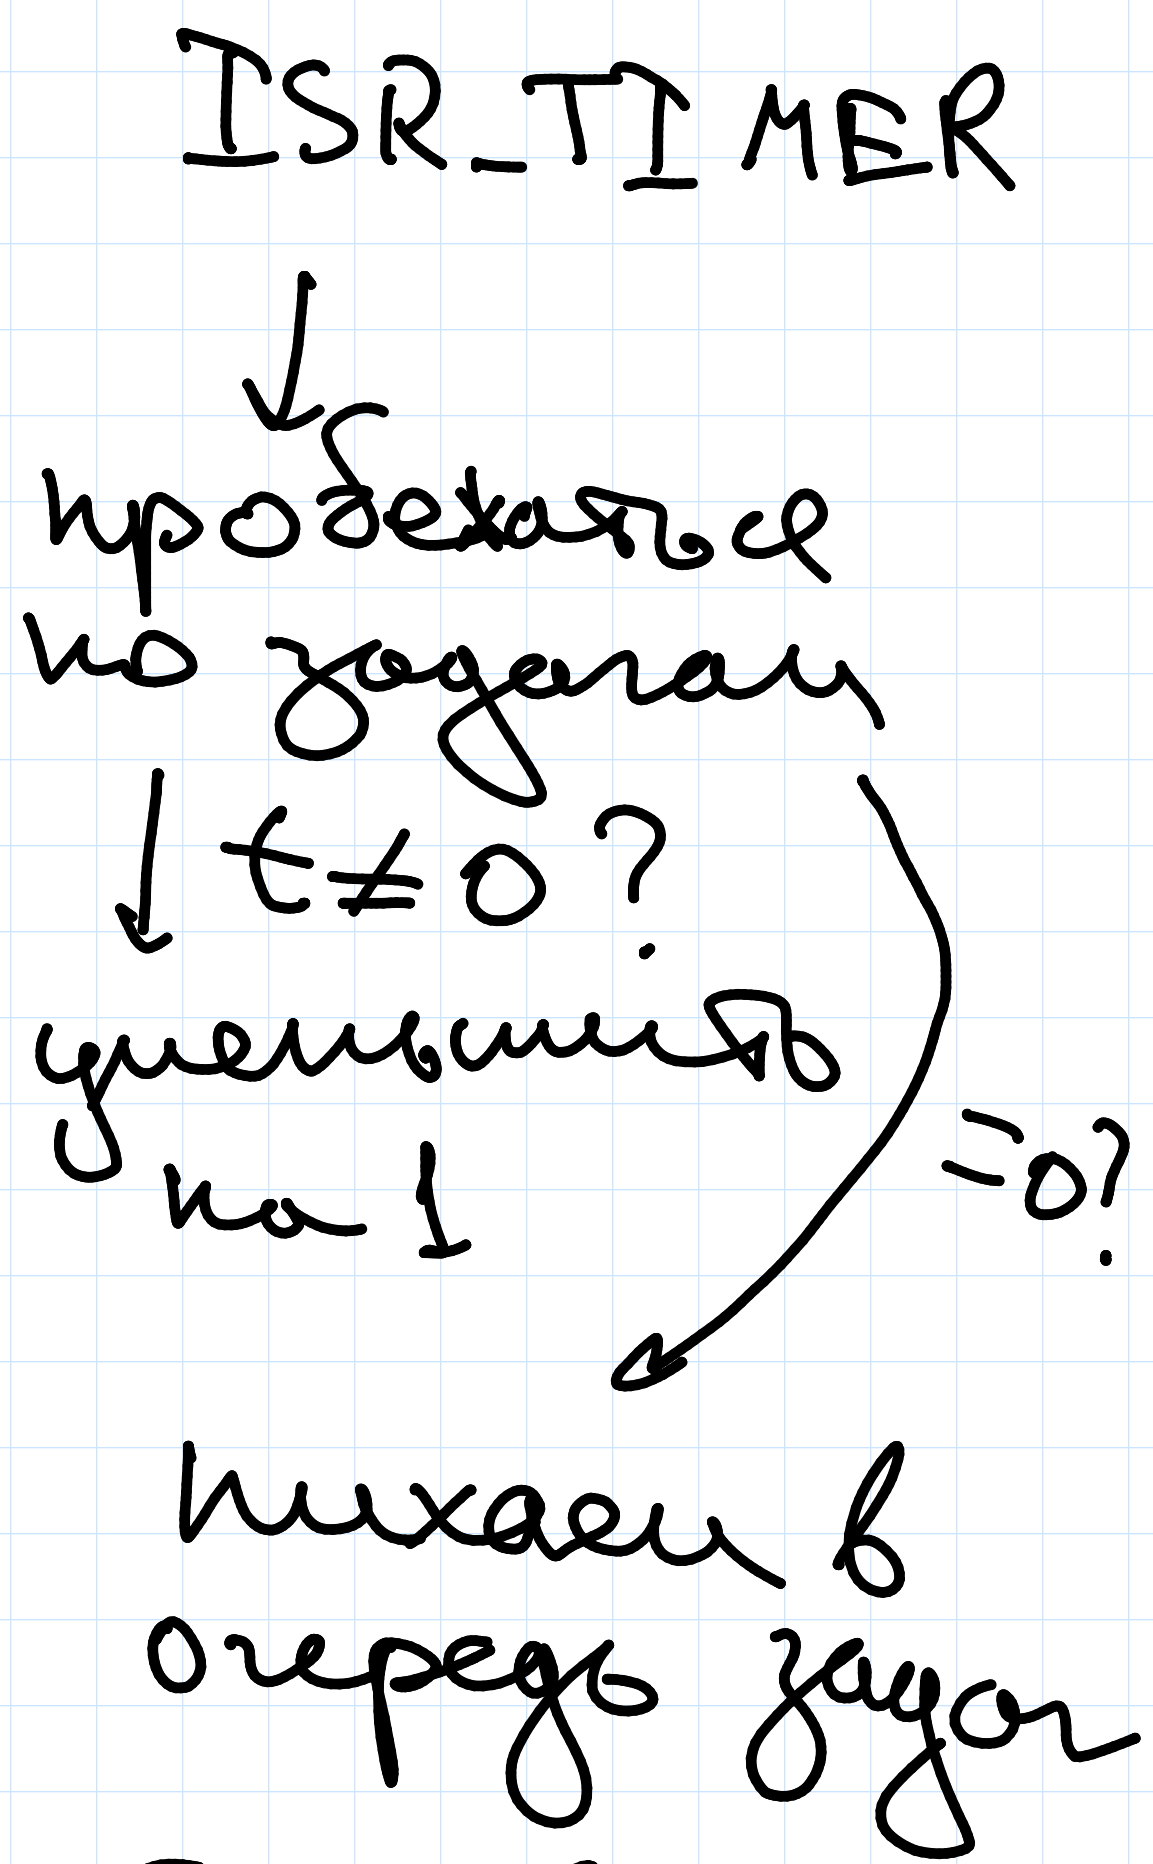 ISR_TIMER
пробежаться
по задачам
t≠0?
уменьшить
=0?
на 1
пихаем в
очередь задач